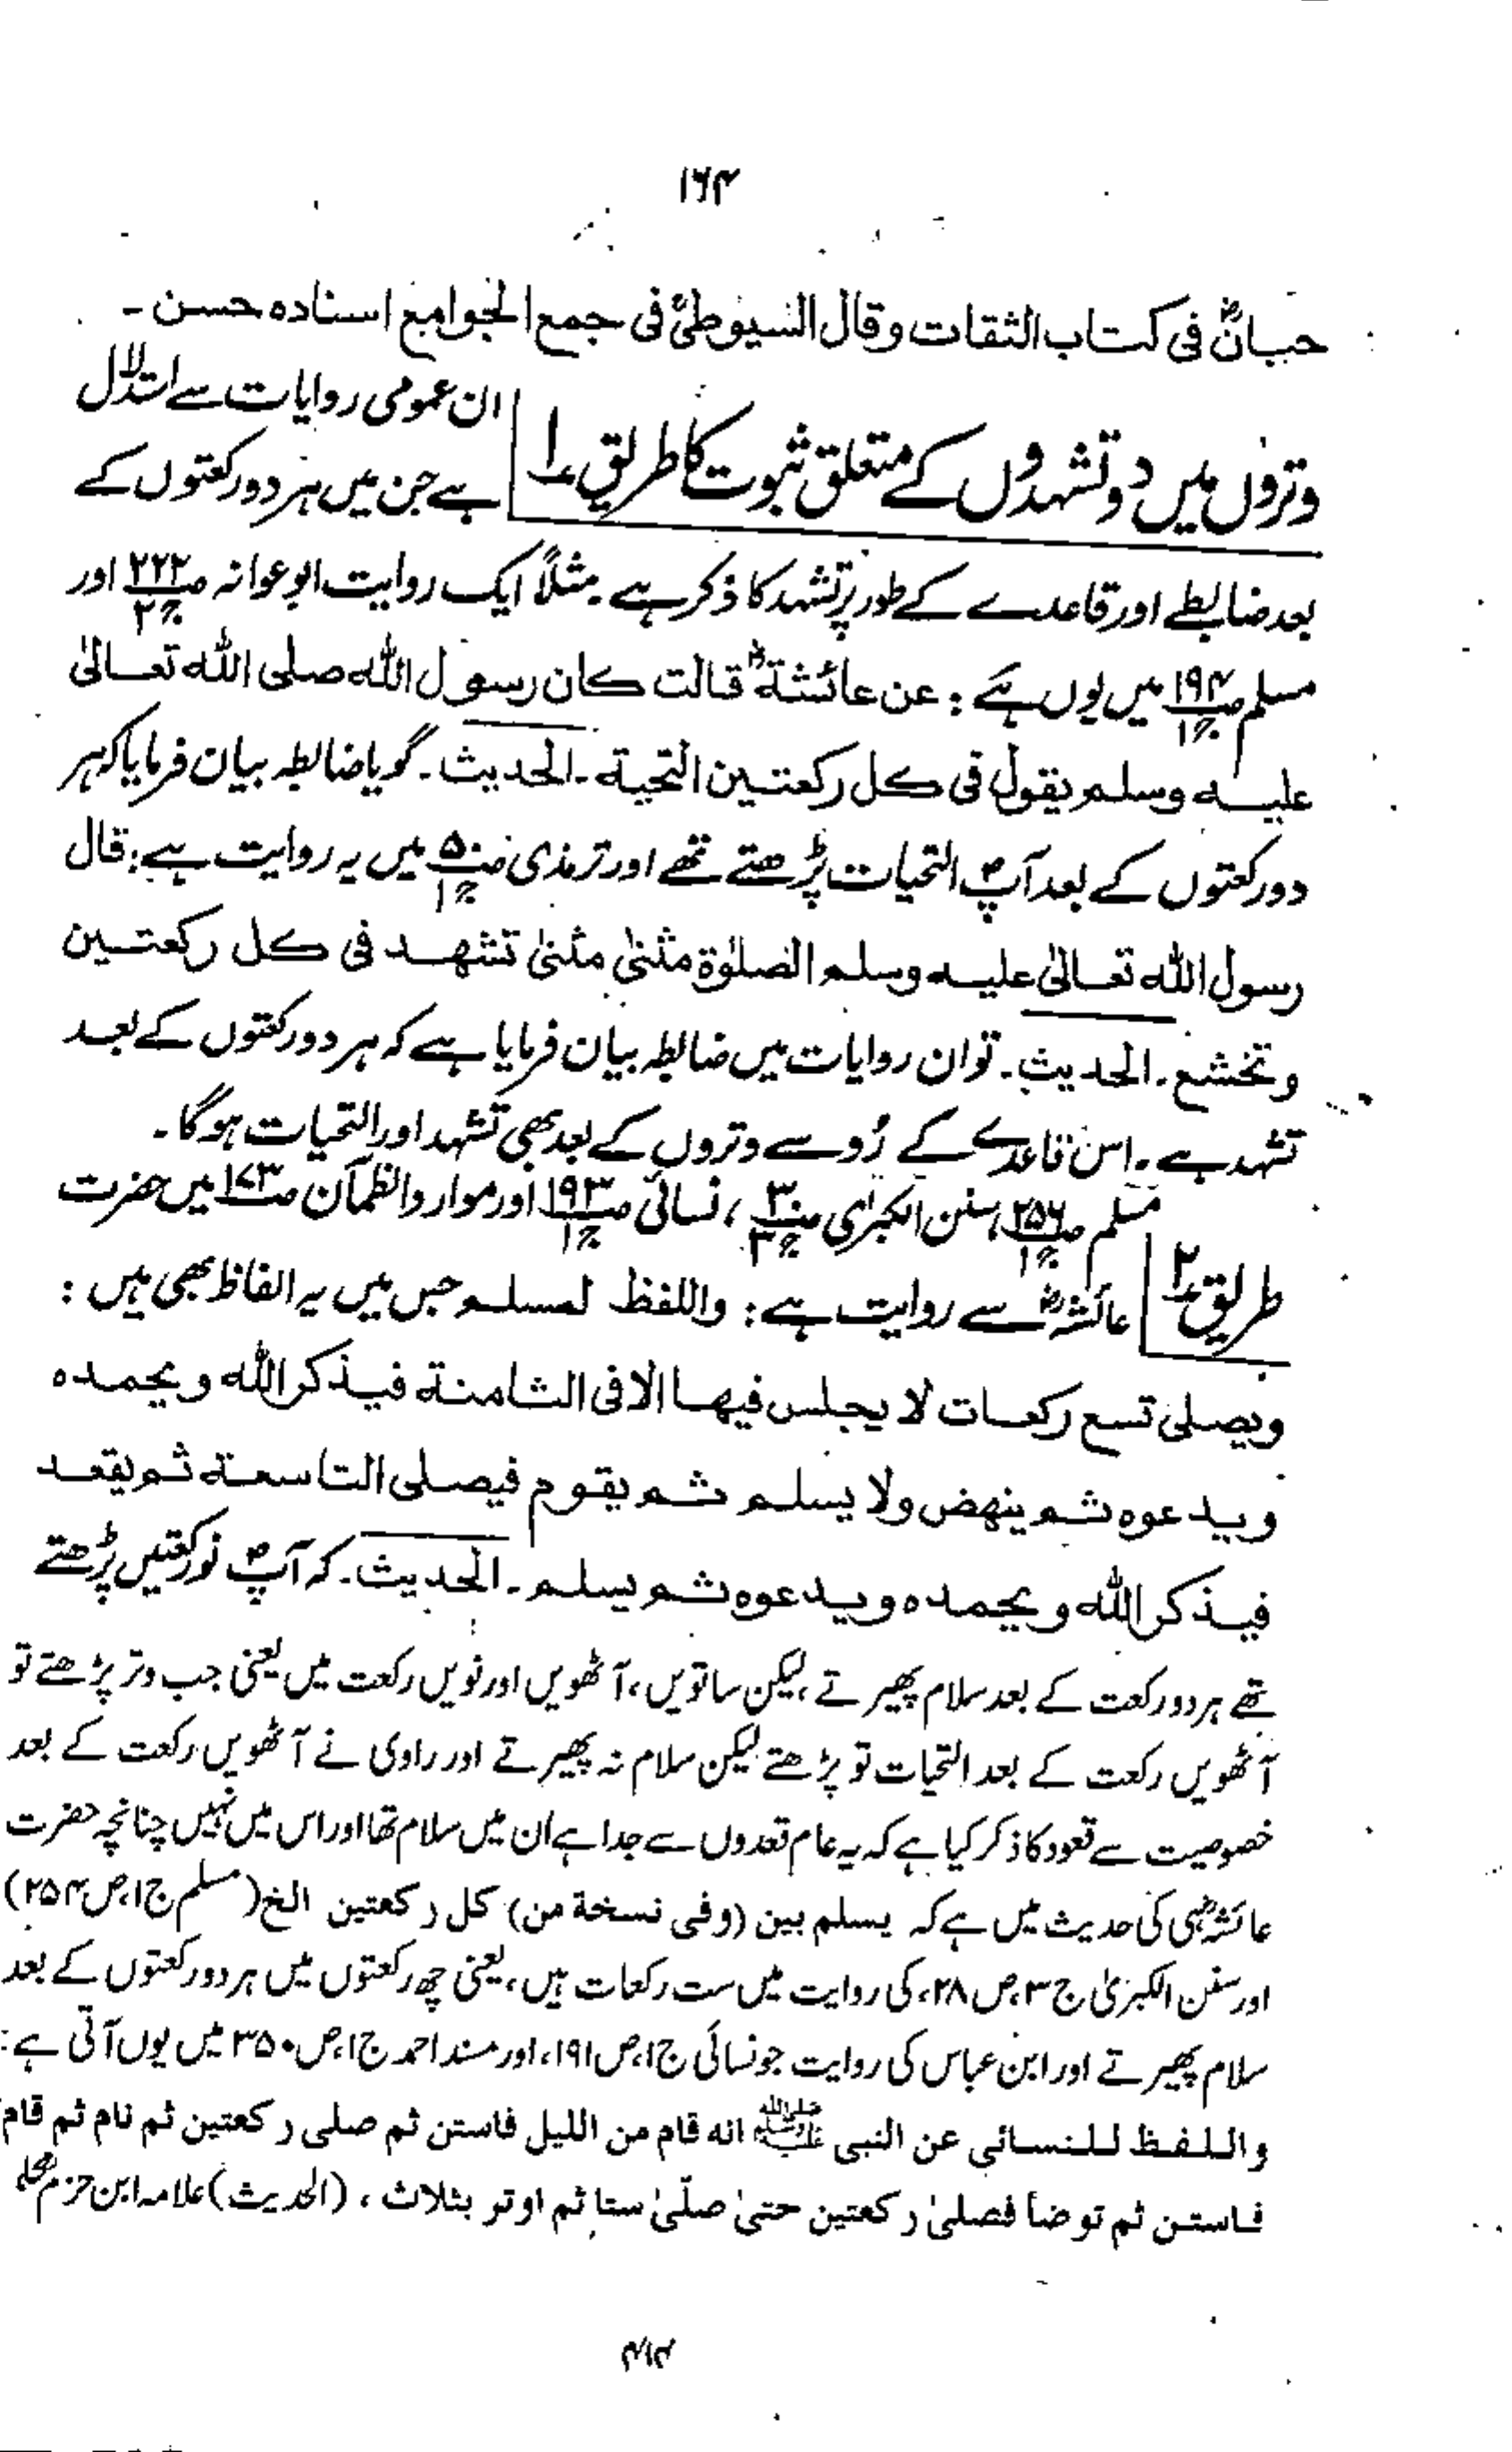 ۱۶۴
حبانؒ فی کتاب الثقات وقال السیوطیؒ فی جمع الجوامع اسنادہ حسن ۔
وتروں میں دو تشہدوں کے متعلق ثبوت کا طریق ۱ ان عمومی روایات سے استدلال
ہے جن میں ہر دو رکعتوں کے
بعد ضابطے اور قاعدے کے طور پر تشہد کا ذکر ہے ۔ مثلاً ایک روایت ابو عوانہ ص۲۲۲ ج۲ اور
مسلم ص۱۹۴ ج۱ میں یوں ہے : عن عائشۃؓ قالت کان رسول اللہ صلی اللہ تعالیٰ
علیہ وسلم یقول فی کل رکعتین التحیۃ ۔ الحدیث ۔ گویا ضابطہ بیان فرمایا کہ ہر
دو رکعتوں کے بعد آپؐ التحیات پڑھتے تھے اور ترمذی ص۵۰ ج۱ میں یہ روایت ہے : قال
رسول اللہ تعالیٰ علیہ وسلم الصلوٰۃ مثنیٰ مثنیٰ تشھد فی کل رکعتین
وتخشع ۔ الحدیث ۔ تو ان روایات میں ضابطہ بیان فرمایا ہے کہ ہر دو رکعتوں کے بعد
تشہد ہے ۔ اس قاعدے کے رُو سے وتروں کے بعد بھی تشہد اور التحیات ہوگا ۔
طریق ۲ مسلم ص۲۵۶ ج۱، سنن الکبرٰی ص۳۰ ج۳ ، نسائی ص۱۹۳ ج۱ اور موارد الظمآن ص۱۷۳ میں حضرت
عائشہؓ سے روایت ہے : واللفظ لمسلم جس میں یہ الفاظ بھی ہیں :
ویصلی تسع رکعات لا یجلس فیھا الا فی الثامنۃ فیذکر اللہ ویحمدہ
ویدعوہ ثم ینھض ولا یسلم ثم یقوم فیصلی التاسعۃ ثم یقعد
فیذکر اللہ ویحمدہ ویدعوہ ثم یسلم ۔ الحدیث ۔ کہ آپؐ نو رکعتیں پڑھتے
تھے ہر دو رکعت کے بعد سلام پھیرتے ، لیکن ساتویں ، آٹھویں اور نویں رکعت میں یعنی جب وتر پڑھتے تو
آٹھویں رکعت کے بعد التحیات تو پڑھتے لیکن سلام نہ پھیرتے اور راوی نے آٹھویں رکعت کے بعد
خصوصیت سے قعود کا ذکر کیا ہے کہ یہ عام قعدوں سے جدا ہے ان میں سلام تھا اور اس میں نہیں چنانچہ حضرت
عائشہؓ ہی کی حدیث میں ہے کہ یسلم بین (وفی نسخة من) کل رکعتین الخ (مسلم ج۱، ص ۲۵۴)
اور سنن الکبریٰ ج۳، ص ۲۸، کی روایت میں ست رکعات ہیں ، یعنی چھ رکعتوں میں ہر دو رکعتوں کے بعد
سلام پھیرتے اور ابن عباس کی روایت جو نسائی ج۱، ص ۱۹۱، اور مسند احمد ج۱، ص ۳۵۰ میں یوں آتی ہے :
واللفظ للنسائی عن النبی ﷺ انه قام من اللیل فاستن ثم صلی رکعتین ثم نام ثم قام
فاستن ثم توضأ فصلیٰ رکعتین حتیٰ صلّیٰ ستا ثم اوتر بثلاث ، (الحدیث) علامہ ابن حزم محلّٰی